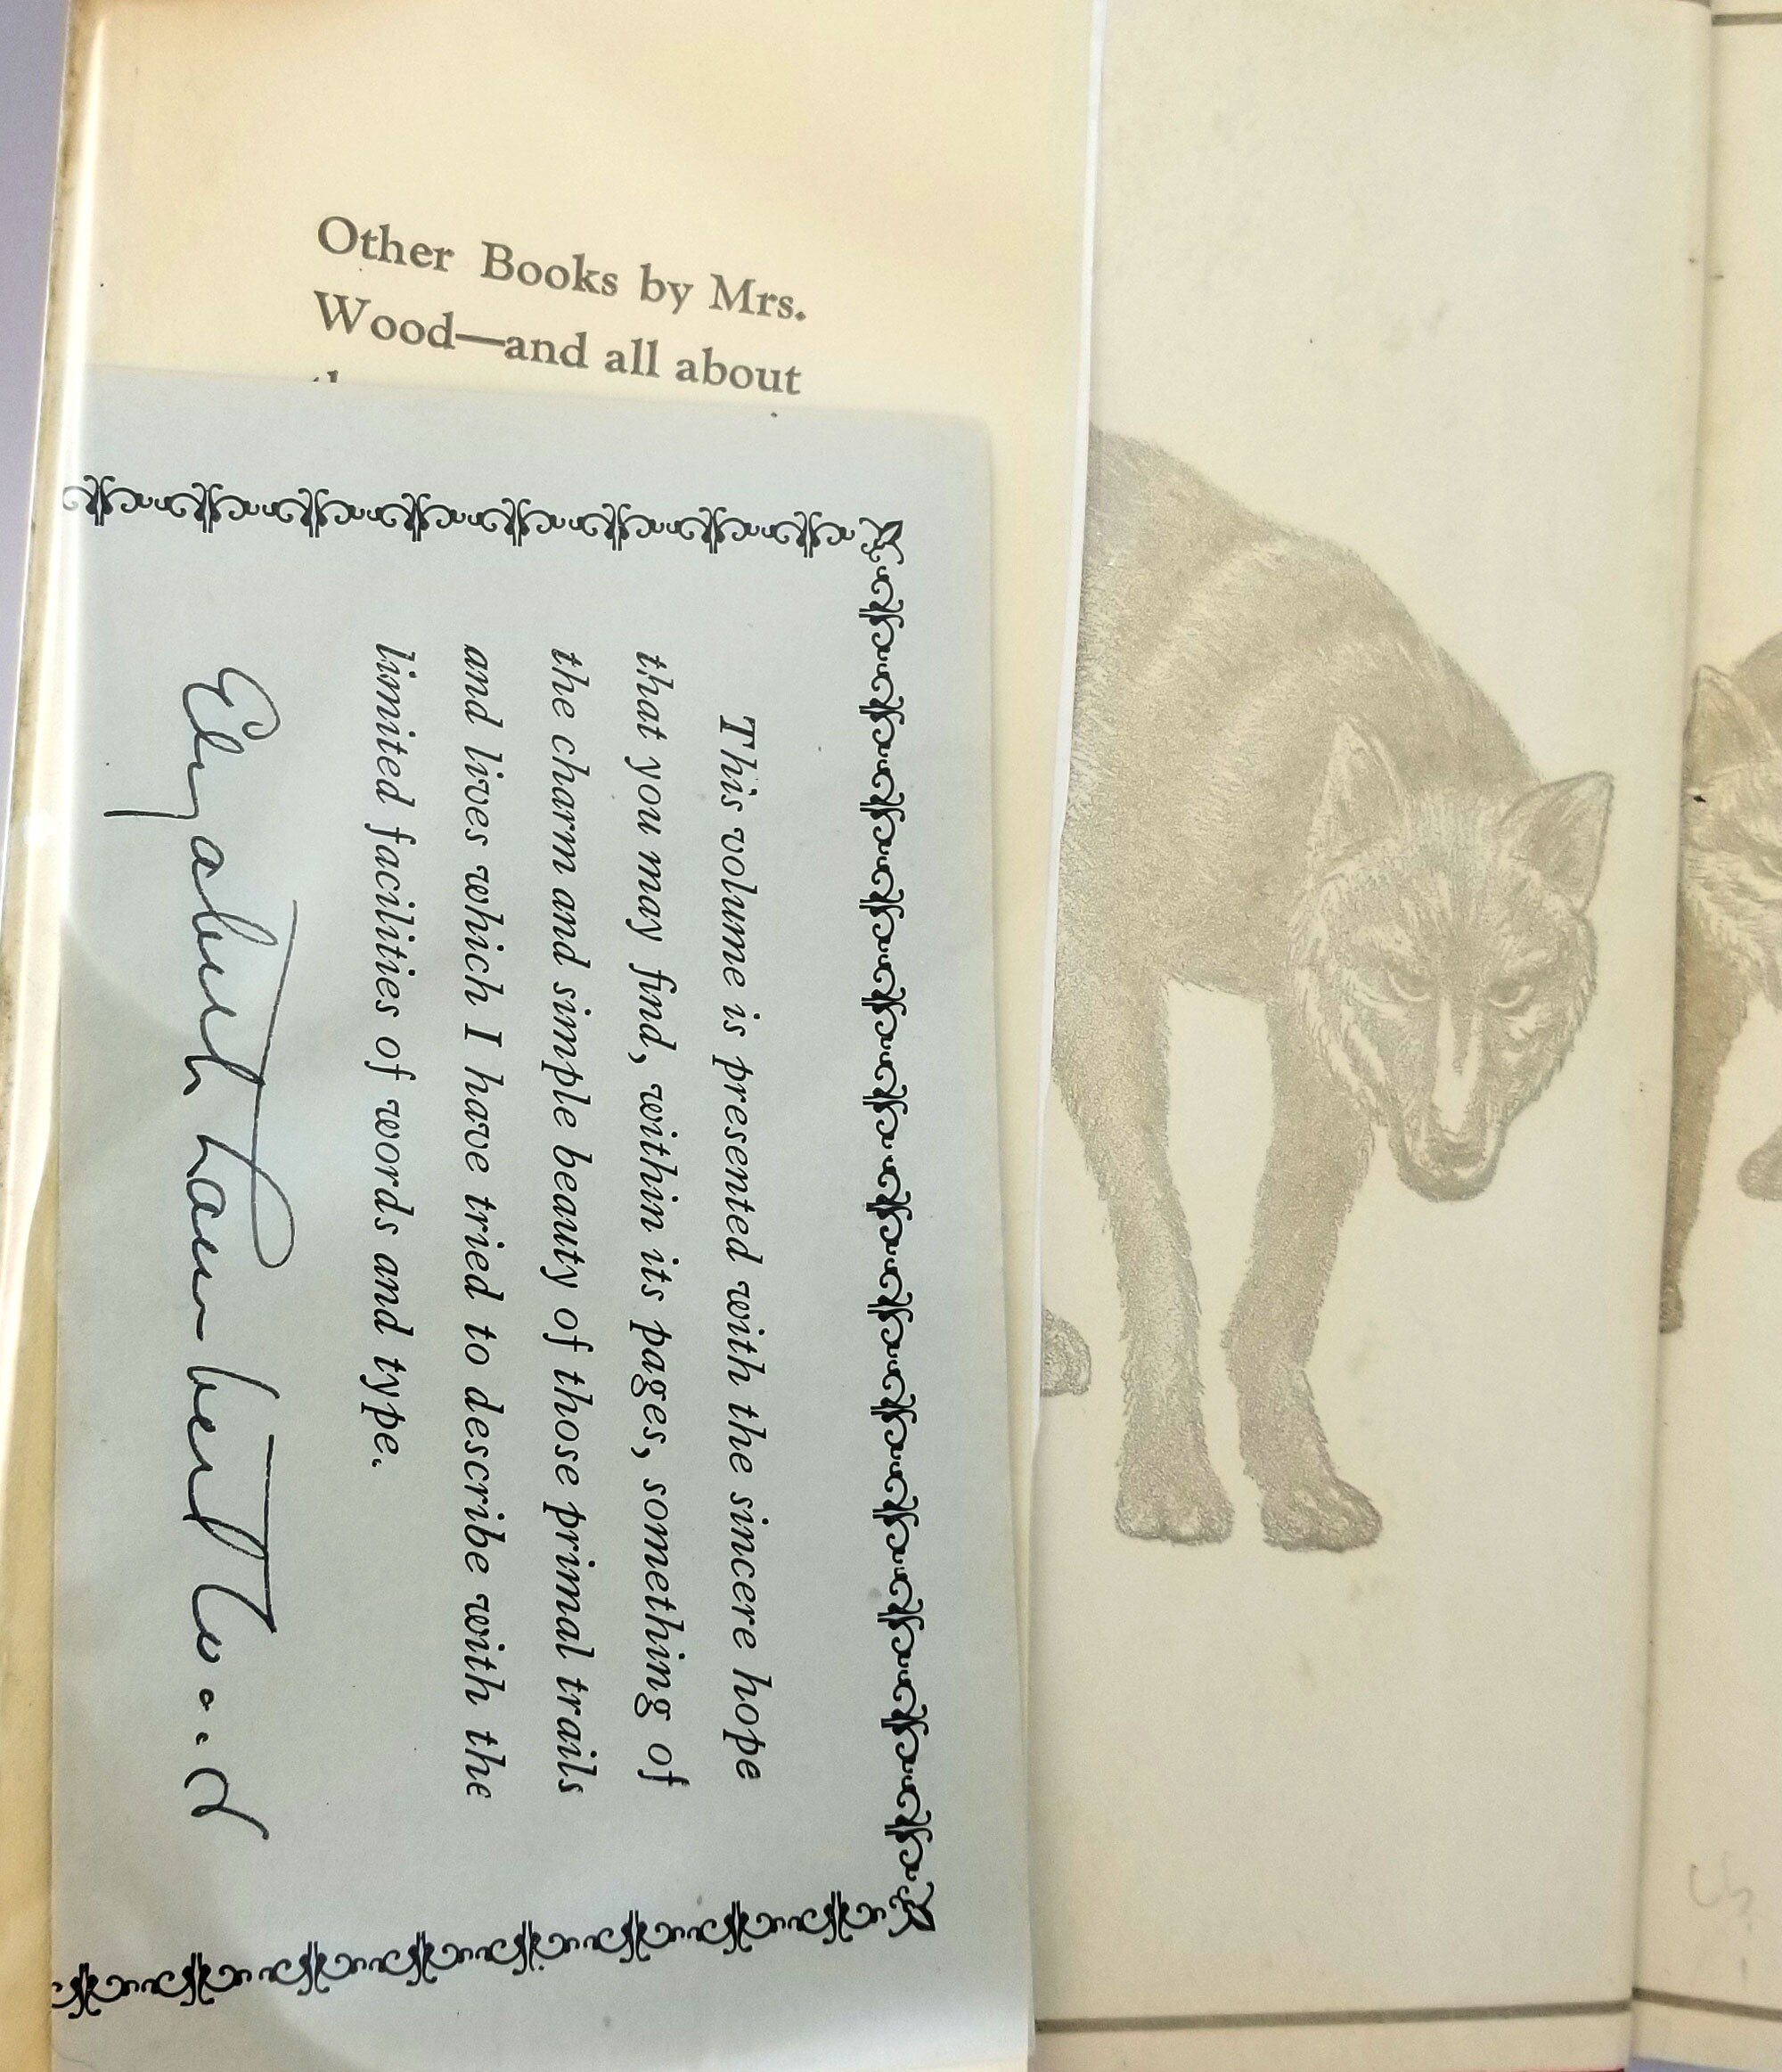 Other Books by Mrs.
Wood—and all about
This volume is presented with the sincere hope
that you may find, within its pages, something of
the charm and simple beauty of those primal trails
and lives which I have tried to describe with the
limited facilities of words and type.
Elizabeth Lambert Wood